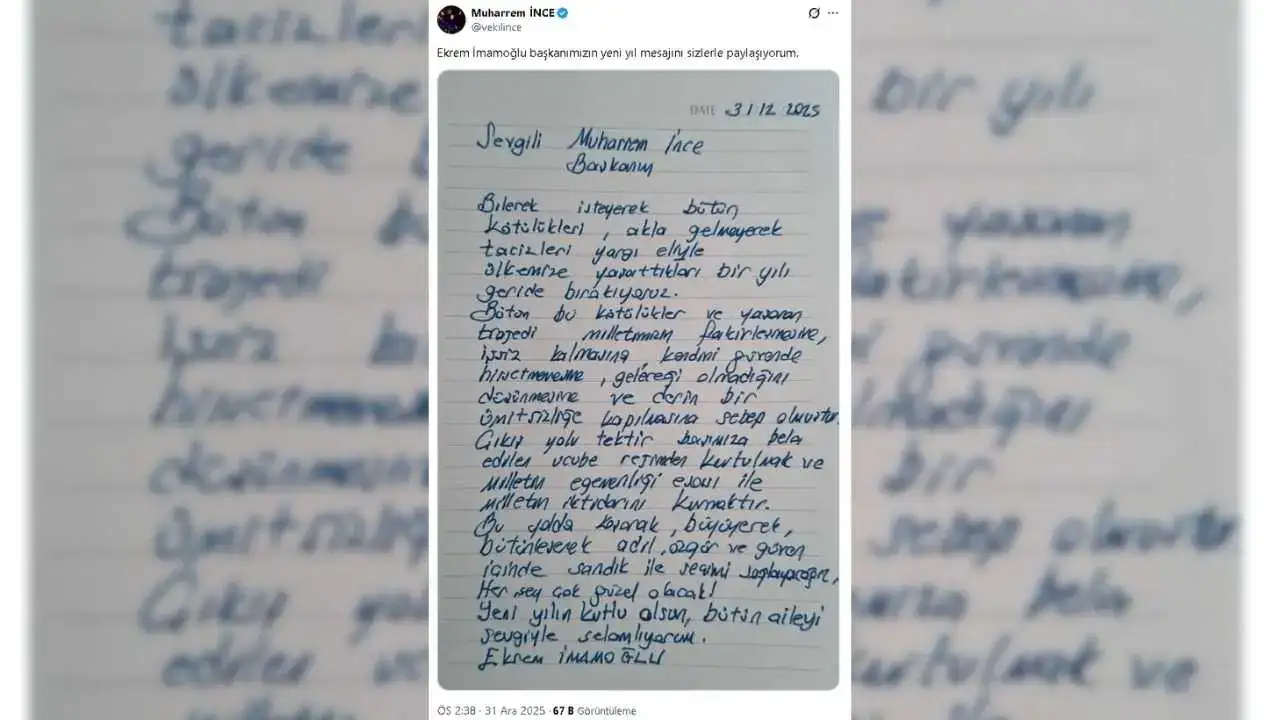 Muharrem İNCE
@vekilince
Ekrem İmamoğlu başkanımızın yeni yıl mesajını sizlerle paylaşıyorum.
DATE 31 12 2025
Sevgili Muharrem İnce
Başkanım
Bilerek isteyerek bütün
kötülükleri, akla gelmeyecek
tacizleri yargı eliyle
ülkemize yaşattıkları bir yılı
geride bırakıyoruz.
Bütün bu kötülükler ve yaşanan
trajedi milletimizin fakirleşmesine,
işsiz kalmasına, kendini güvende
hissetmemesine, geleceği olmadığını
düşünmesine ve derin bir
ümitsizliğe kapılmasına sebep olmuştur.
Çıkış yolu tektir başımıza bela
edilen ucube rejimden kurtulmak ve
milletin egemenliği esası ile
milletin iktidarını kurmaktır.
Bu yolda koşarak, büyüyerek,
bütünleşerek adil, özgür ve güven
içinde sandık ile seçimi sağlayacağız,
Her şey çok güzel olacak!
Yeni yılın kutlu olsun, bütün aileyi
sevgiyle selamlıyorum.
Ekrem İMAMOĞLU
ÖS 2:38 · 31 Ara 2025 · 67 B Görüntüleme